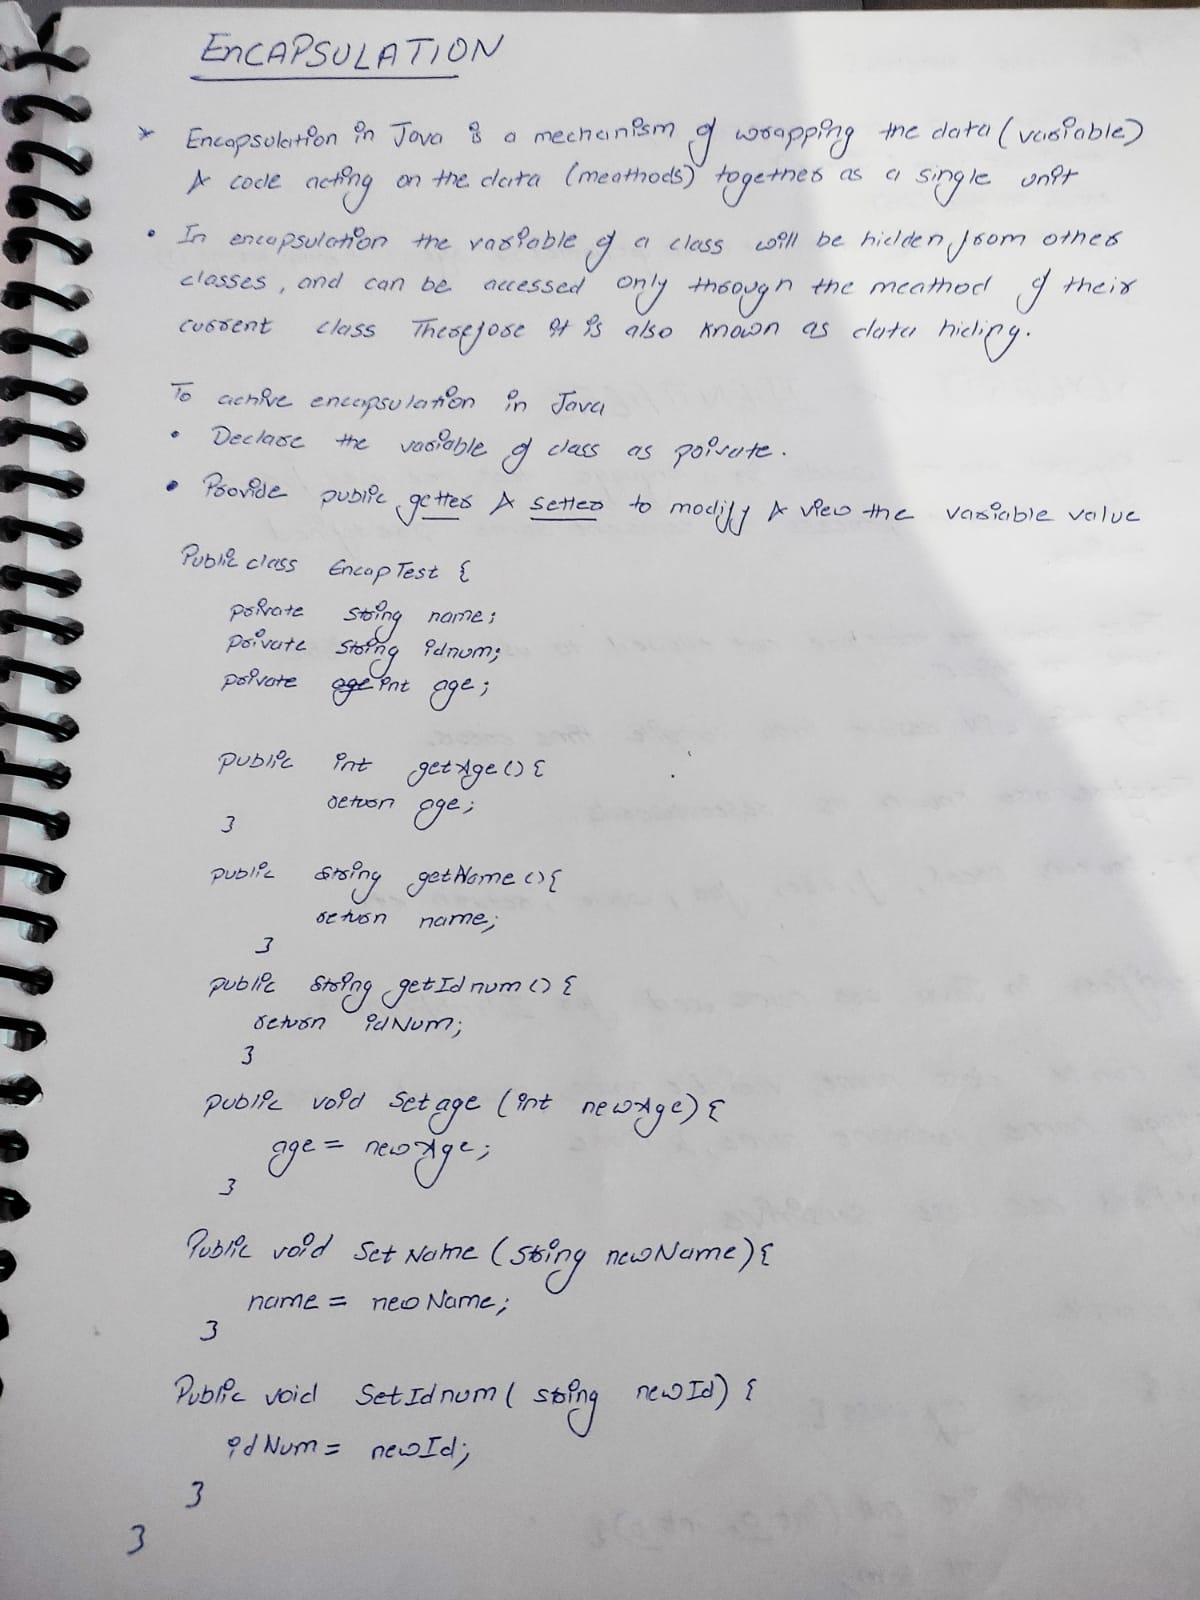 ENCAPSULATION
* Encapsulation in Java is a mechanism of wrapping the data (variable)
& code acting on the data (meathods) together as a single unit
• In encapsulation the variable of a class will be hidden from other
classes, and can be accessed only through the meathod of their
current class Therefore it is also known as data hiding.
To achive encapsulation in Java
• Declare the variable of class as private.
• Provide public getter & setter to modify & view the variable value
Public class EncapTest {
private string name;
private string idnum;
private age int age;
public int getAge() {
return age;
}
public string getName() {
return name;
}
public string getIdnum() {
return idNum;
}
public void Setage (int newAge) {
age = newAge;
}
Public void SetName (string newName) {
name = newName;
}
Public void SetIdnum ( string newId) {
idNum = newId;
}
}